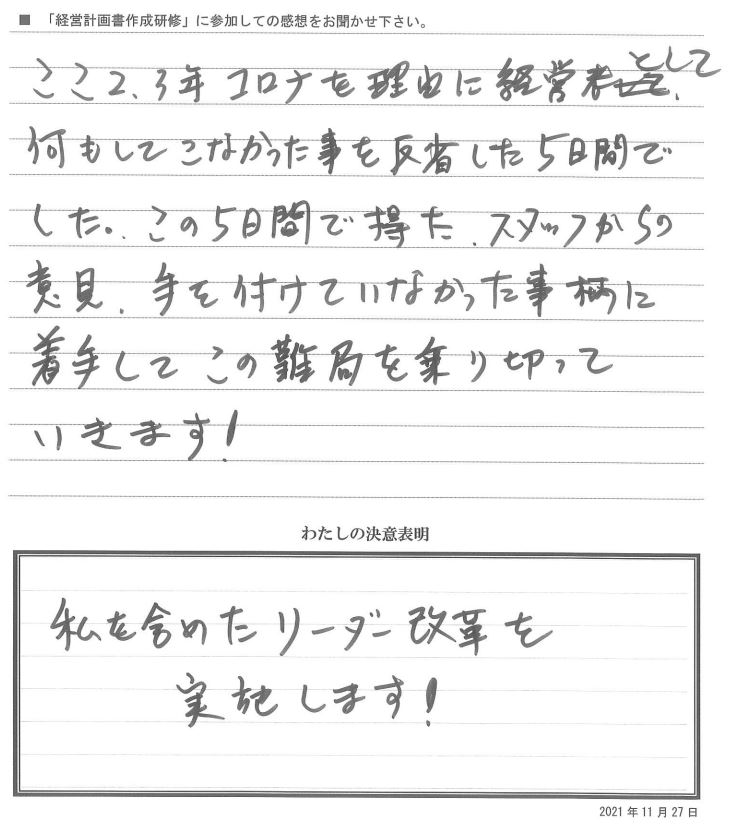 ■ 「経営計画書作成研修」に参加しての感想をお聞かせ下さい。
ここ2、3年コロナを理由に経営者として、
何もしてこなかった事を反省した5日間で
した。この5日間で得た、スタッフからの
意見、手を付けていなかった事柄に
着手してこの難局を乗り切って
いきます!
わたしの決意表明
私を含めたリーダー改革を
実施します!
2021年11月27日